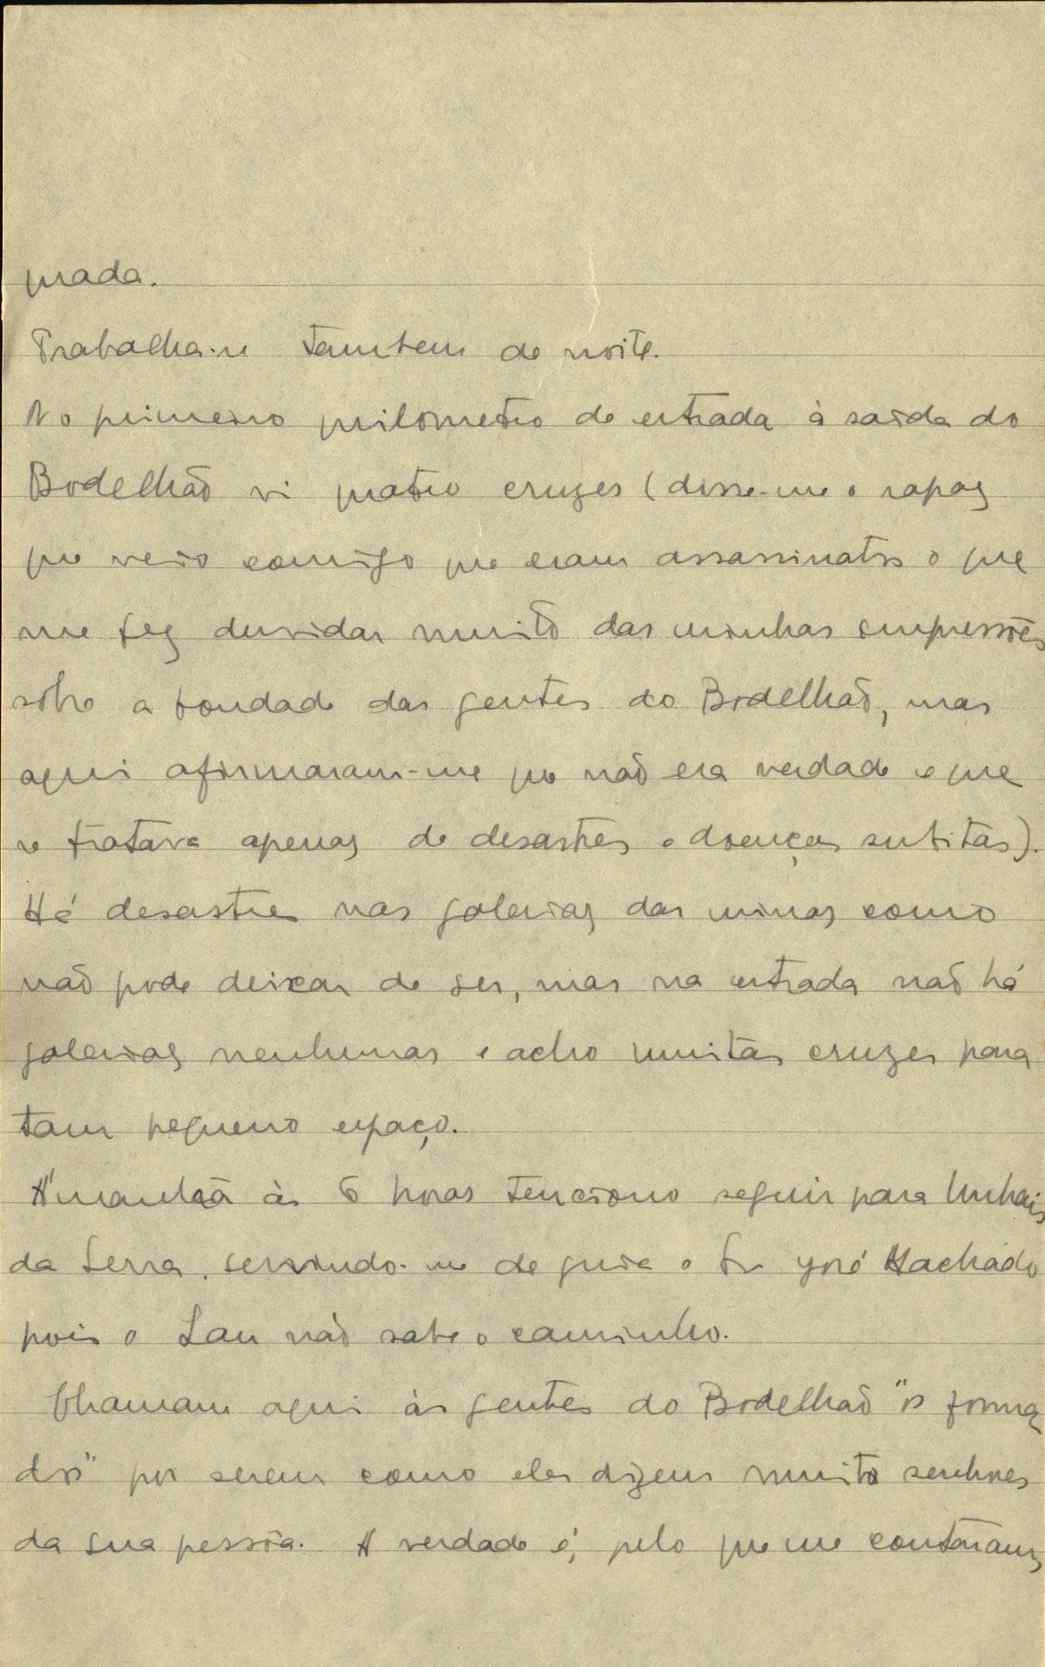 prada.
Trabalha-se tambem de noite.
No primeiro quilometro de estrada à saída do
Bodelhão vi quatro cruzes (disse-me o rapaz
que veio comigo que eram assassinatos o que
me fez duvidar muito das minhas impressões
sôbre a bondade das gentes do Bodelhão, mas
aqui afirmaram-me que não era verdade e que
se tratava apenas de desastres e doenças subitas).
Há desastres nas galerias das minas como
não pode deixar de ser, mas na estrada não há
galerias nenhumas e acho muitas cruzes para
tam pequeno espaço.
A'manhã às 6 horas tenciono seguir para Unhais
da Serra. servindo-me de guia o Sr José Machado
pois o Lau não sabe o caminho.
Chamam aqui às gentes do Bodelhão "os forma
dos" por serem como eles dizem muito senhores
da sua pessôa. A verdade é, pelo que me contaram,